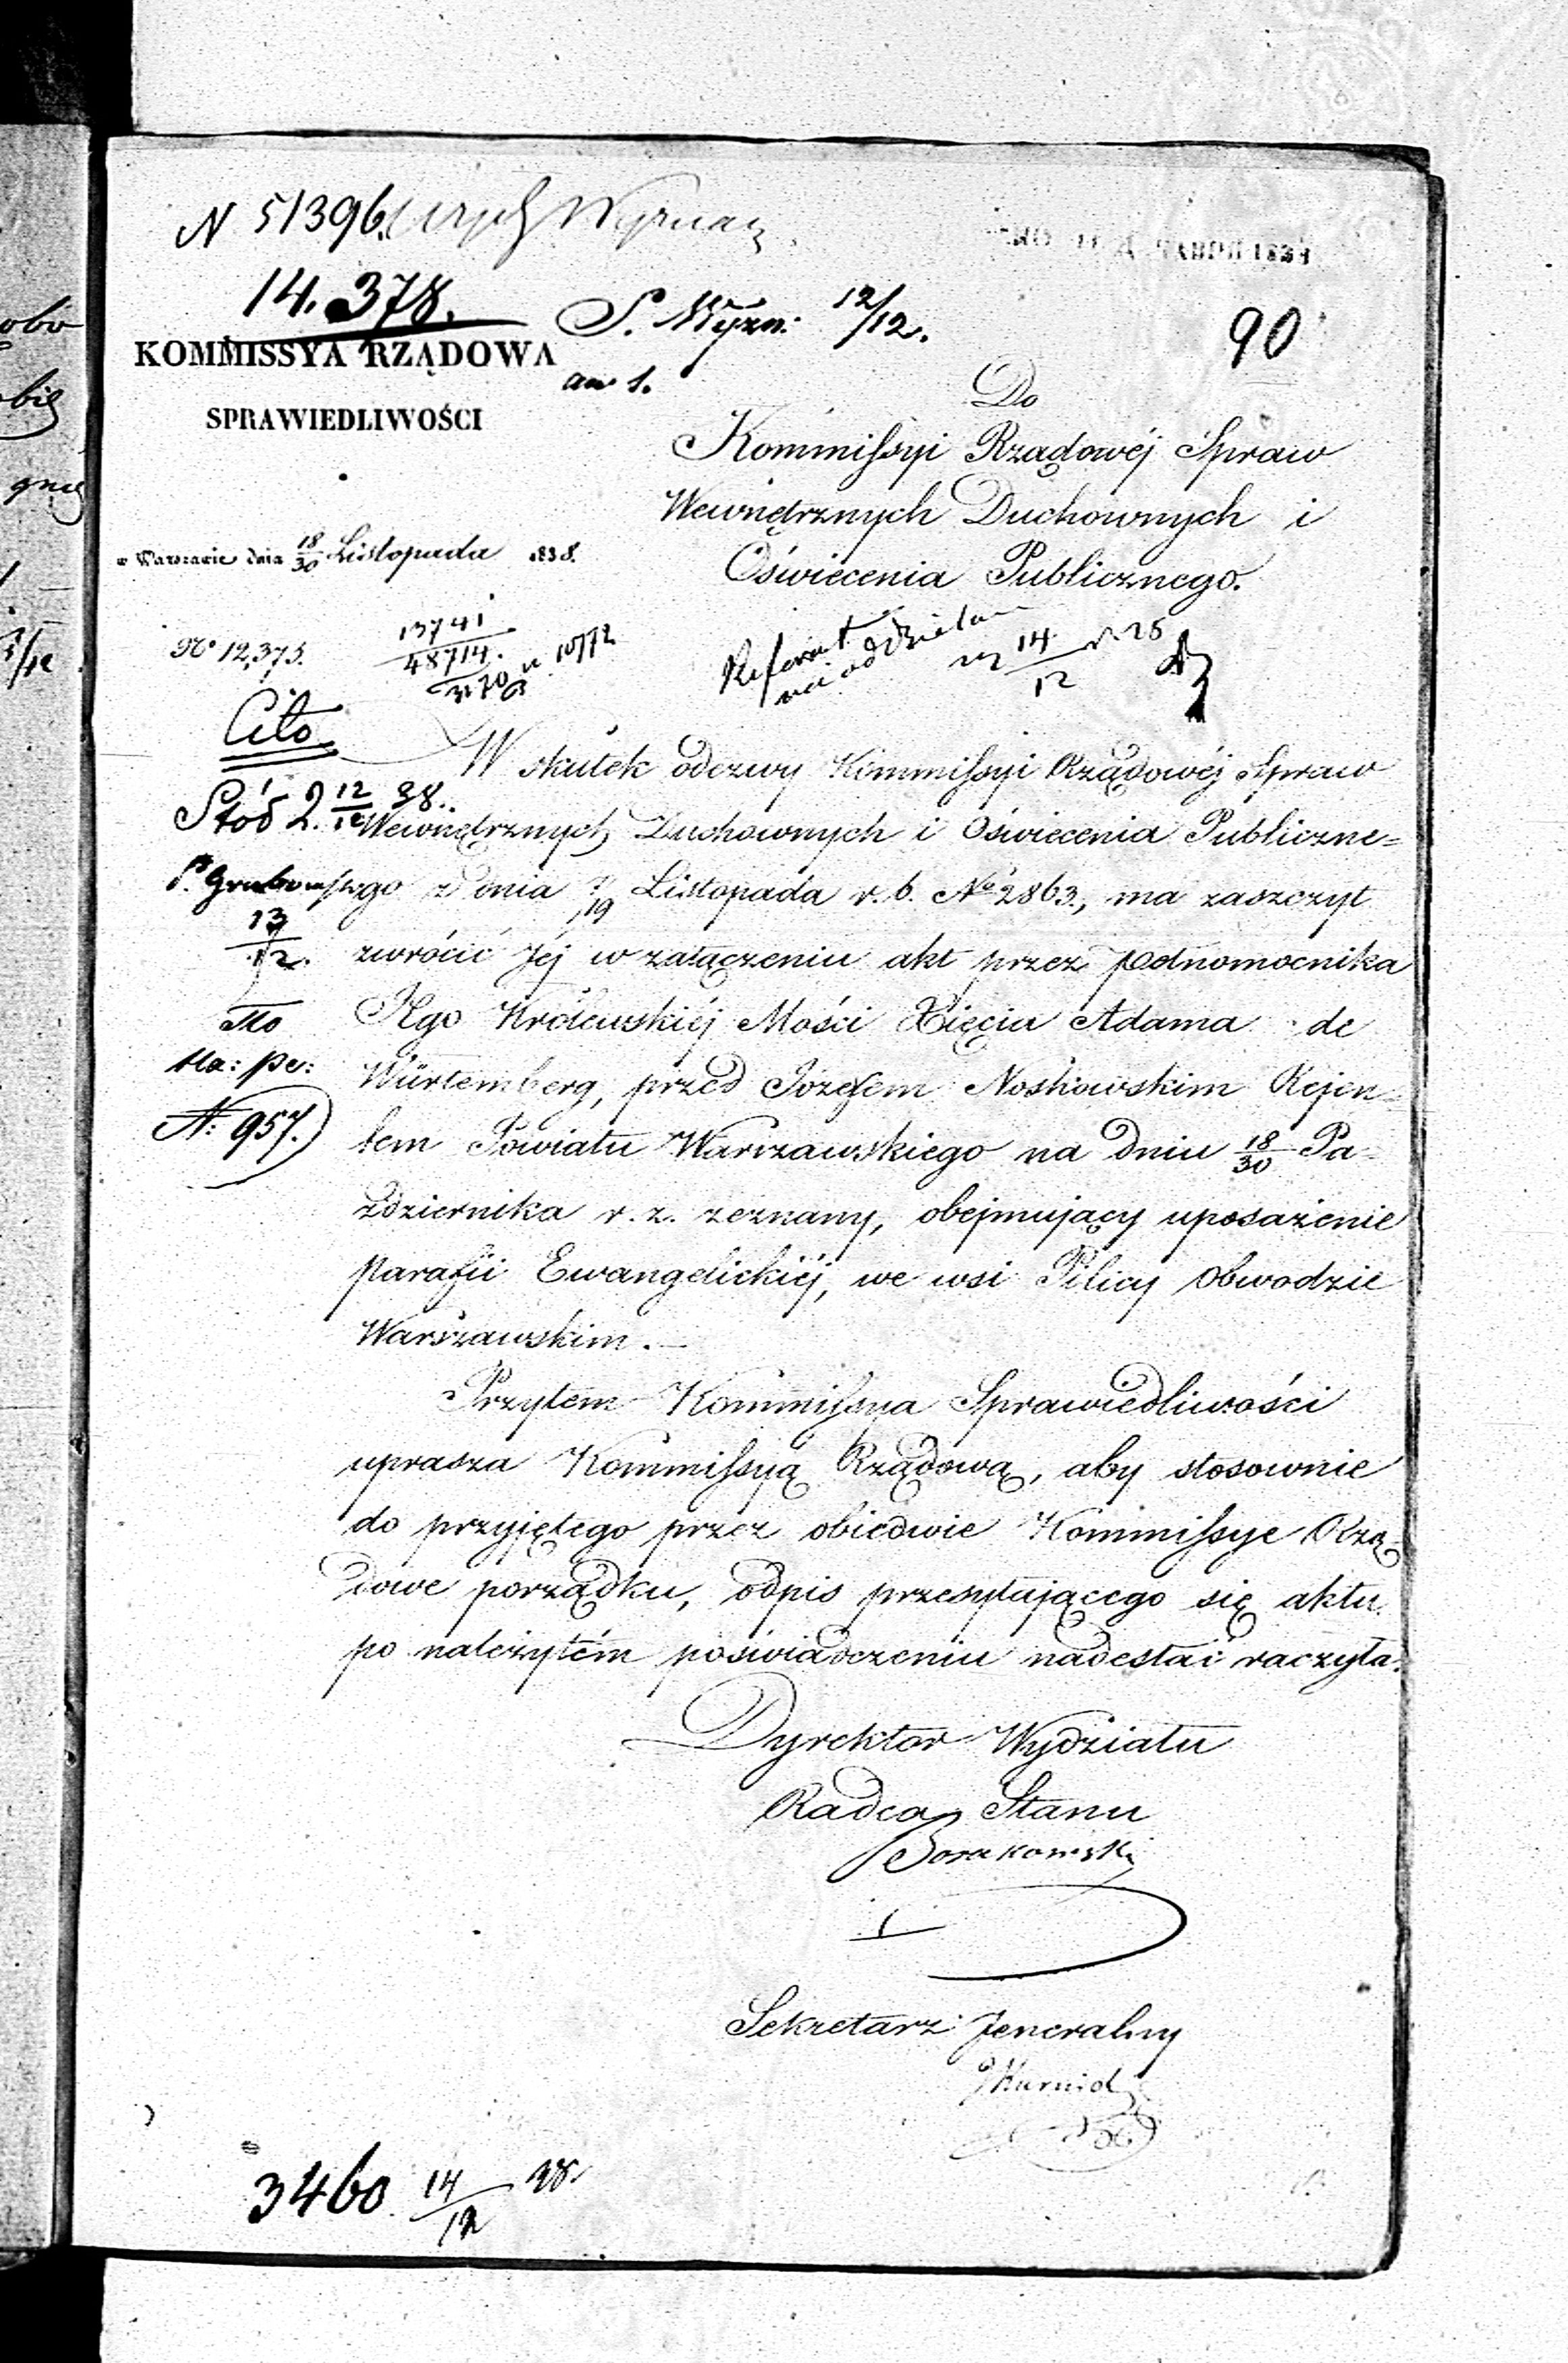 N 51396
14.378.
S. Wyzn: 12/12.
90
KOMMISSYA RZĄDOWA
SPRAWIEDLIWOŚCI
an 1.
Do
Kommissyi Rządowéj Spraw
Wewnętrznych Duchownych i
Oświecenia Publicznego.
w Warszawie dnia 18/30 Listopada 1838.
No 12,373.
13741
48714.
Referent
14/12
Cito
W skutek odezwy Kommissyi Rządowéj Spraw
Stód 2. 12/12 38.
Wewnętrznych Duchownych i Oświecenia Publiczne=
go z dnia 7/19 Listopada r. b. No 2863, ma zaszczyt
13/12.
zwrócić Jéj w załączeniu akt przez pełnomocnika
JKgo Królewskiéj Mości Xięcia Adama de
Würtemberg, przed Józefem Noskowskim Rejen=
N: 957.
tem Powiatu Warszawskiego na dniu 18/30 Pa=
ździernika r. z. zeznany, obejmujący uposażenie
parafii Ewangelickiéj, we wsi Pilicy Obwodzie
Warszawskim.
Przytem Kommissya Sprawiedliwości
uprasza Kommissyą Rządową, aby stosownie
do przyjętego przez obiedwie Kommissye Rzą=
dowe porządku, odpis przesyłającego się aktu
po należytém poświadczeniu nadesłać raczyła.
Dyrektor Wydziału
Radca Stanu
Sekretarz Jeneralny
3460 14/12 38.